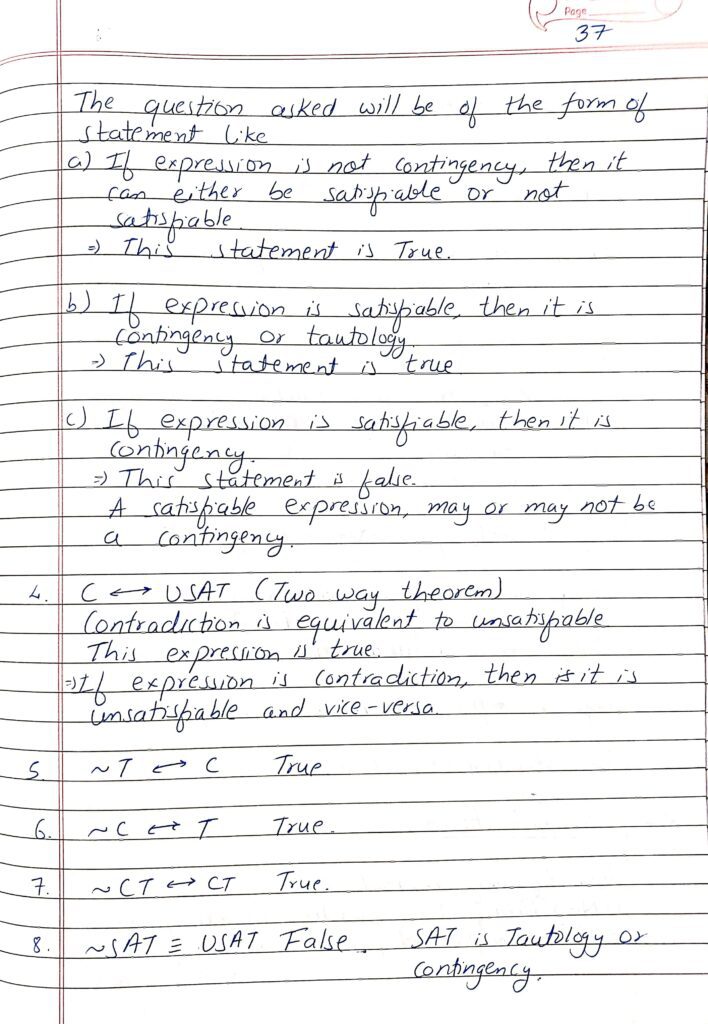 Page
37
The question asked will be of the form of
statement like
a) If expression is not contingency, then it
can either be satisfiable or not
satisfiable
⇒ This statement is True.
b) If expression is satisfiable, then it is
contingency or tautology.
⇒ This statement is true
c) If expression is satisfiable, then it is
contingency.
⇒ This statement is false.
A satisfiable expression, may or may not be
a contingency.
4. C ↔ USAT (Two way theorem)
Contradiction is equivalent to unsatisfiable
This expression is true.
⇒ If expression is contradiction, then it is
unsatisfiable and vice-versa.
5. ~T ↔ C True
6. ~C ↔ T True.
7. ~CT ↔ CT True.
8. ~SAT ≡ USAT False. SAT is Tautology or
contingency.